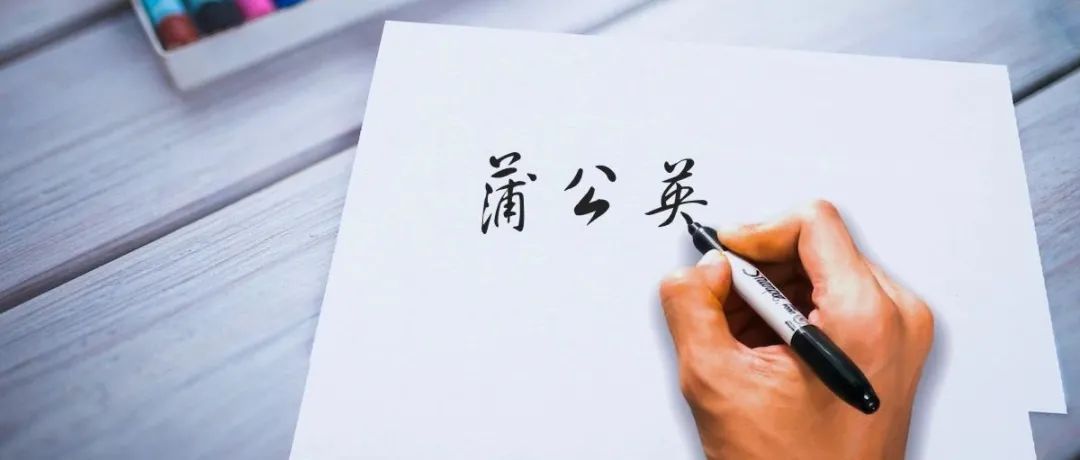 蒲公英
Sharpie